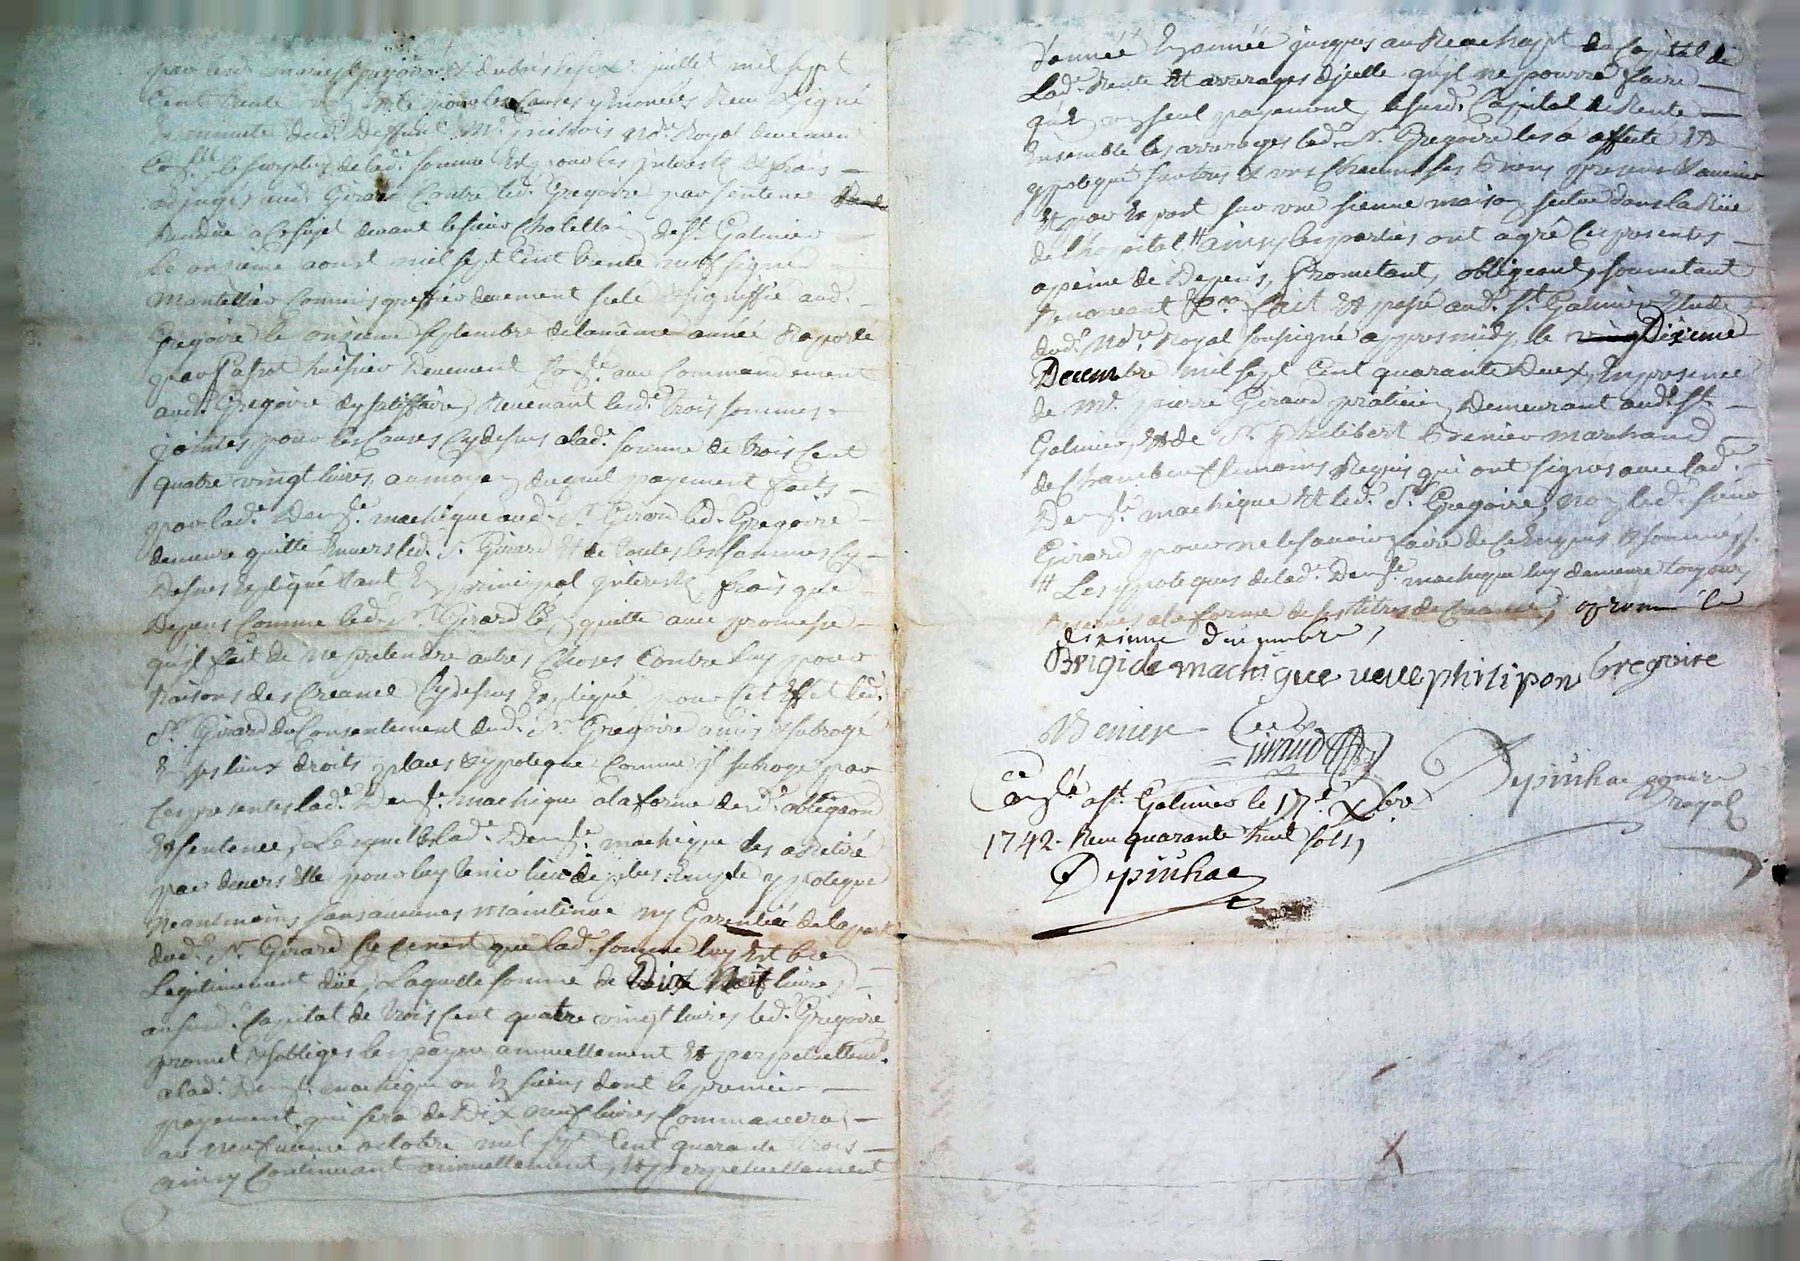 par led. marie Gregoire et dubois le six juillet mil sept
Cent trente pour les Causes y Enoncées Receu signé
minutte dud. Deffunt Mr. nore. Royal deuement
le surplus de lade. somme Est pour les jnterests et frais
adjugés aud. Girard Contre led. Gregoire par sentence
Rendüe a Ce sujet devant le sieur Chatellain de St. Galmier
le onzieme aoust mil sept Cent trente neuf signée
Mantellier Commis greffier deuement scelé et signiffié aud.
Gregoire le onzieme septembre de la même année Raporté
par huissier Deuement Conlé. avec Commandement
aud. Gregoire dy satisffaire, Revenant lesde. trois sommes
jointes pour les Causes Cy dessus a lade. somme de trois Cent
quatre vingt livres, au moyen duquel payement fait
par lade. Demlle. machique aud. Sr. Girard led. Gregoire
demeure quitte Envers led. Sr. Girard Et de toutes les sommes Cy
Dessus Expliqué tant En principal jnterests, frais que
Depens Comme led. Sr. Girard len quitte avec promesse
qu'jl fait de ne pretendre autres Choses Contre luy pour
Raisons des Creance Cy dessus Expliqué, pour Cet Effet led.
Sr. Girard du Consentement dud. Sr. Gregoire a mis et subrogé
En ses lieux droits places et ypoteque Comme jl subroge par
Ces presentes lade. Demlle. machique a la forme desd. obligaon
Et sentence, Lesquelles lade. Demlle. machique les a Retiré
par devers Elle pour luy tenir lieu de plus Emple ypoteque
Neantmoins sans aucunes maintenue ny Garentie de la part
dud. Sr. Girard Sy Ce nest que lad. somme luy Est bien
Legitimement düe, Laquelle somme de Dix Neuf livres,
au susd. Capital de trois Cent quatre vingt livres led. Gregoire
promet et s'obliges les payer annuellement Et perpetuellemt.
a lad. Demlle. machique ou Es siens dont le premier
payement qui sera de Dix neuf livres Commancera
au neufvieme octobre mil sept Cent quarante trois
ainsy Continuant annuellement, Et perpetuellement
d'année En année jusques au Reachapt du Capital de
Lade. Rente Et arrerages d'jcelle qu'jl ne pourra faire
qu'En un seul payement, le susd. Capital de Rente
Ensemble les arrerages led. Sr. Gregoire les a affecté Et
ypotequé sur tous Et uns Chacuns ses biens presents Et avenir
Et par Exprest sur une sienne maison scitue dans la Rüe
de l'hopital # ainsy les parties ont agré Ces presentes
a peine de Depens, Prometant, obligeant, soumetant
Renonceant &a. fait Et passé aud. St. Galmier Etude
dud. Nore. Royal soussigné appres midy le Dixieme
Decembre mil sept Cent quarante Deux, En presence
de Me. pierre Girard praticien Demeurant aud. St.
Galmier, Et de Sr. philibert Grenier marchand
de Chambeuf temoins Requis qui ont signés avec lad.
Demlle. machique Et led. Sr. Gregoire, Non led. sieur
Girard pour ne le sauoir faire de Ce Enquis Et sommé
# Les ypoteques de lad. Demlle. machique luy demeure toujours
a la forme de ses titres de Creance, aprouvé le
dixieme decembre,
Brigide machique veuve philipon Gregoire
Girard
Depiuhac nottaire
royal
Conlé. a St. Galmier le 17e. Xbre
1742. Receu quarante huit sols,
Depiuhac